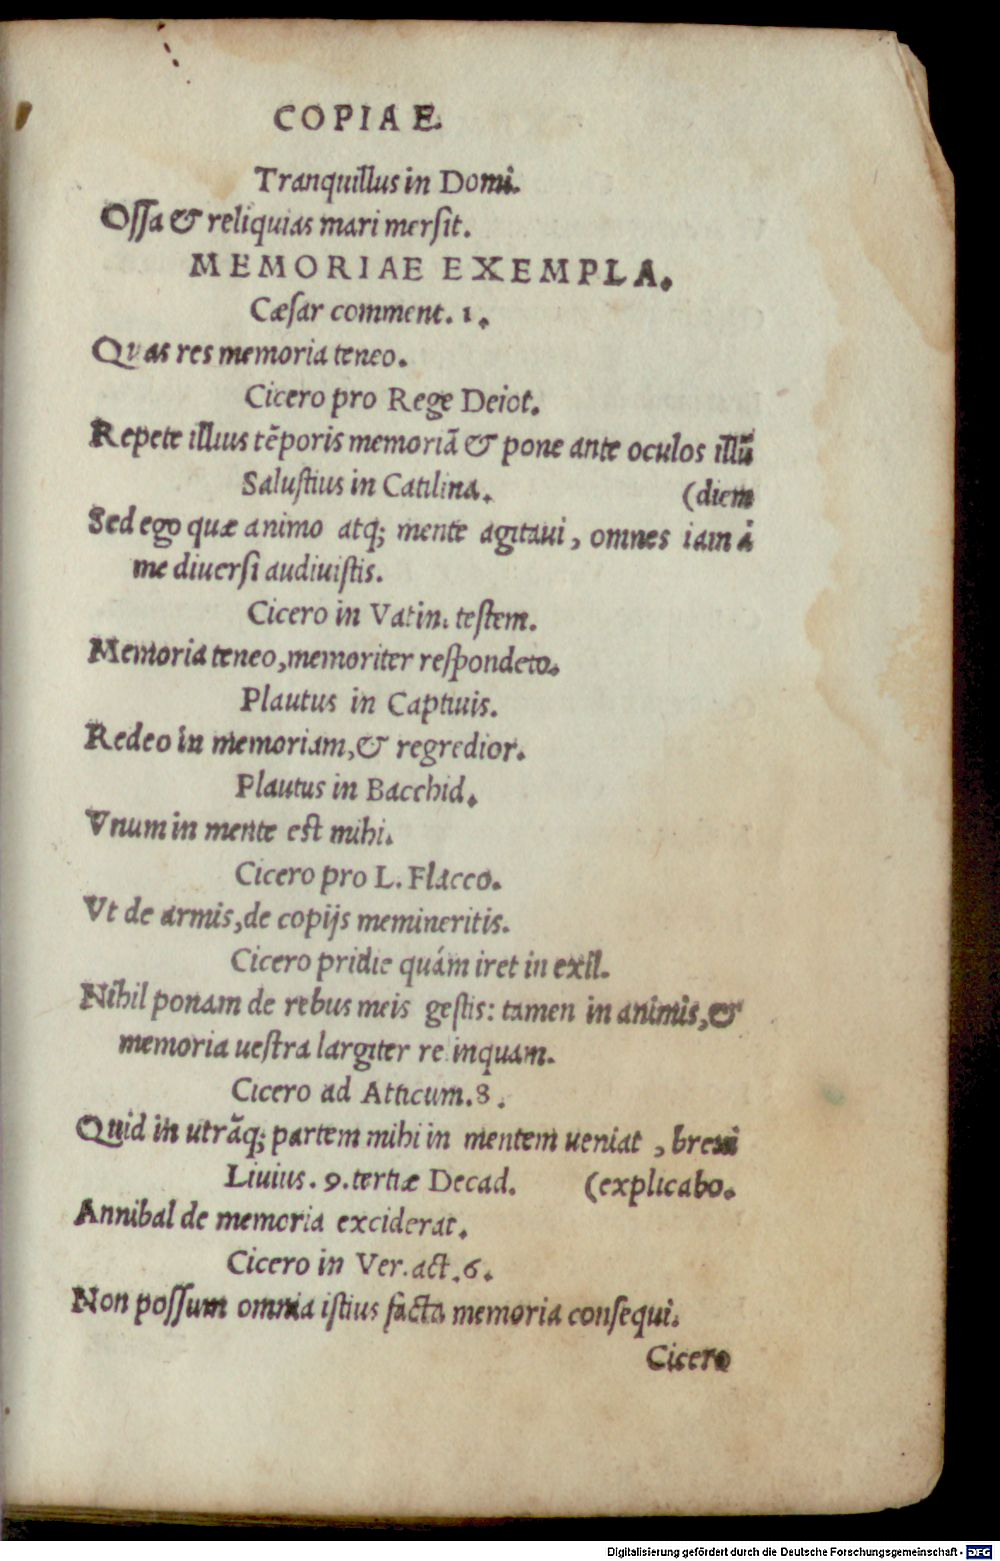 COPIAE.
Tranquillus in Domi.
Ossa & reliquias mari mersit.
MEMORIAE EXEMPLA.
Cæsar comment. 1.
Quas res memoria teneo.
Cicero pro Rege Deiot.
Repete illius tẽporis memoriã & pone ante oculos illũ
Salustius in Catilina. (diem
Sed ego quæ animo atq; mente agitaui, omnes iam à
me diuersi audiuistis.
Cicero in Vatin. testem.
Memoria teneo, memoriter respondeto.
Plautus in Captiuis.
Redeo in memoriam, & regredior.
Plautus in Bacchid.
Vnum in mente est mihi.
Cicero pro L. Flacco.
Vt de armis, de copijs memineritis.
Cicero pridie quám iret in exil.
Nihil ponam de rebus meis gestis: tamen in animis, &
memoria uestra largiter re inquam.
Cicero ad Atticum. 8.
Quid in utrãq; partem mihi in mentem ueniat, breui
Liuius. 9. tertiæ Decad. (explicabo.
Annibal de memoria exciderat.
Cicero in Ver. act. 6.
Non possum omnia istius facta memoria consequi.
Cicero
Digitalisierung gefördert durch die Deutsche Forschungsgemeinschaft - DFG